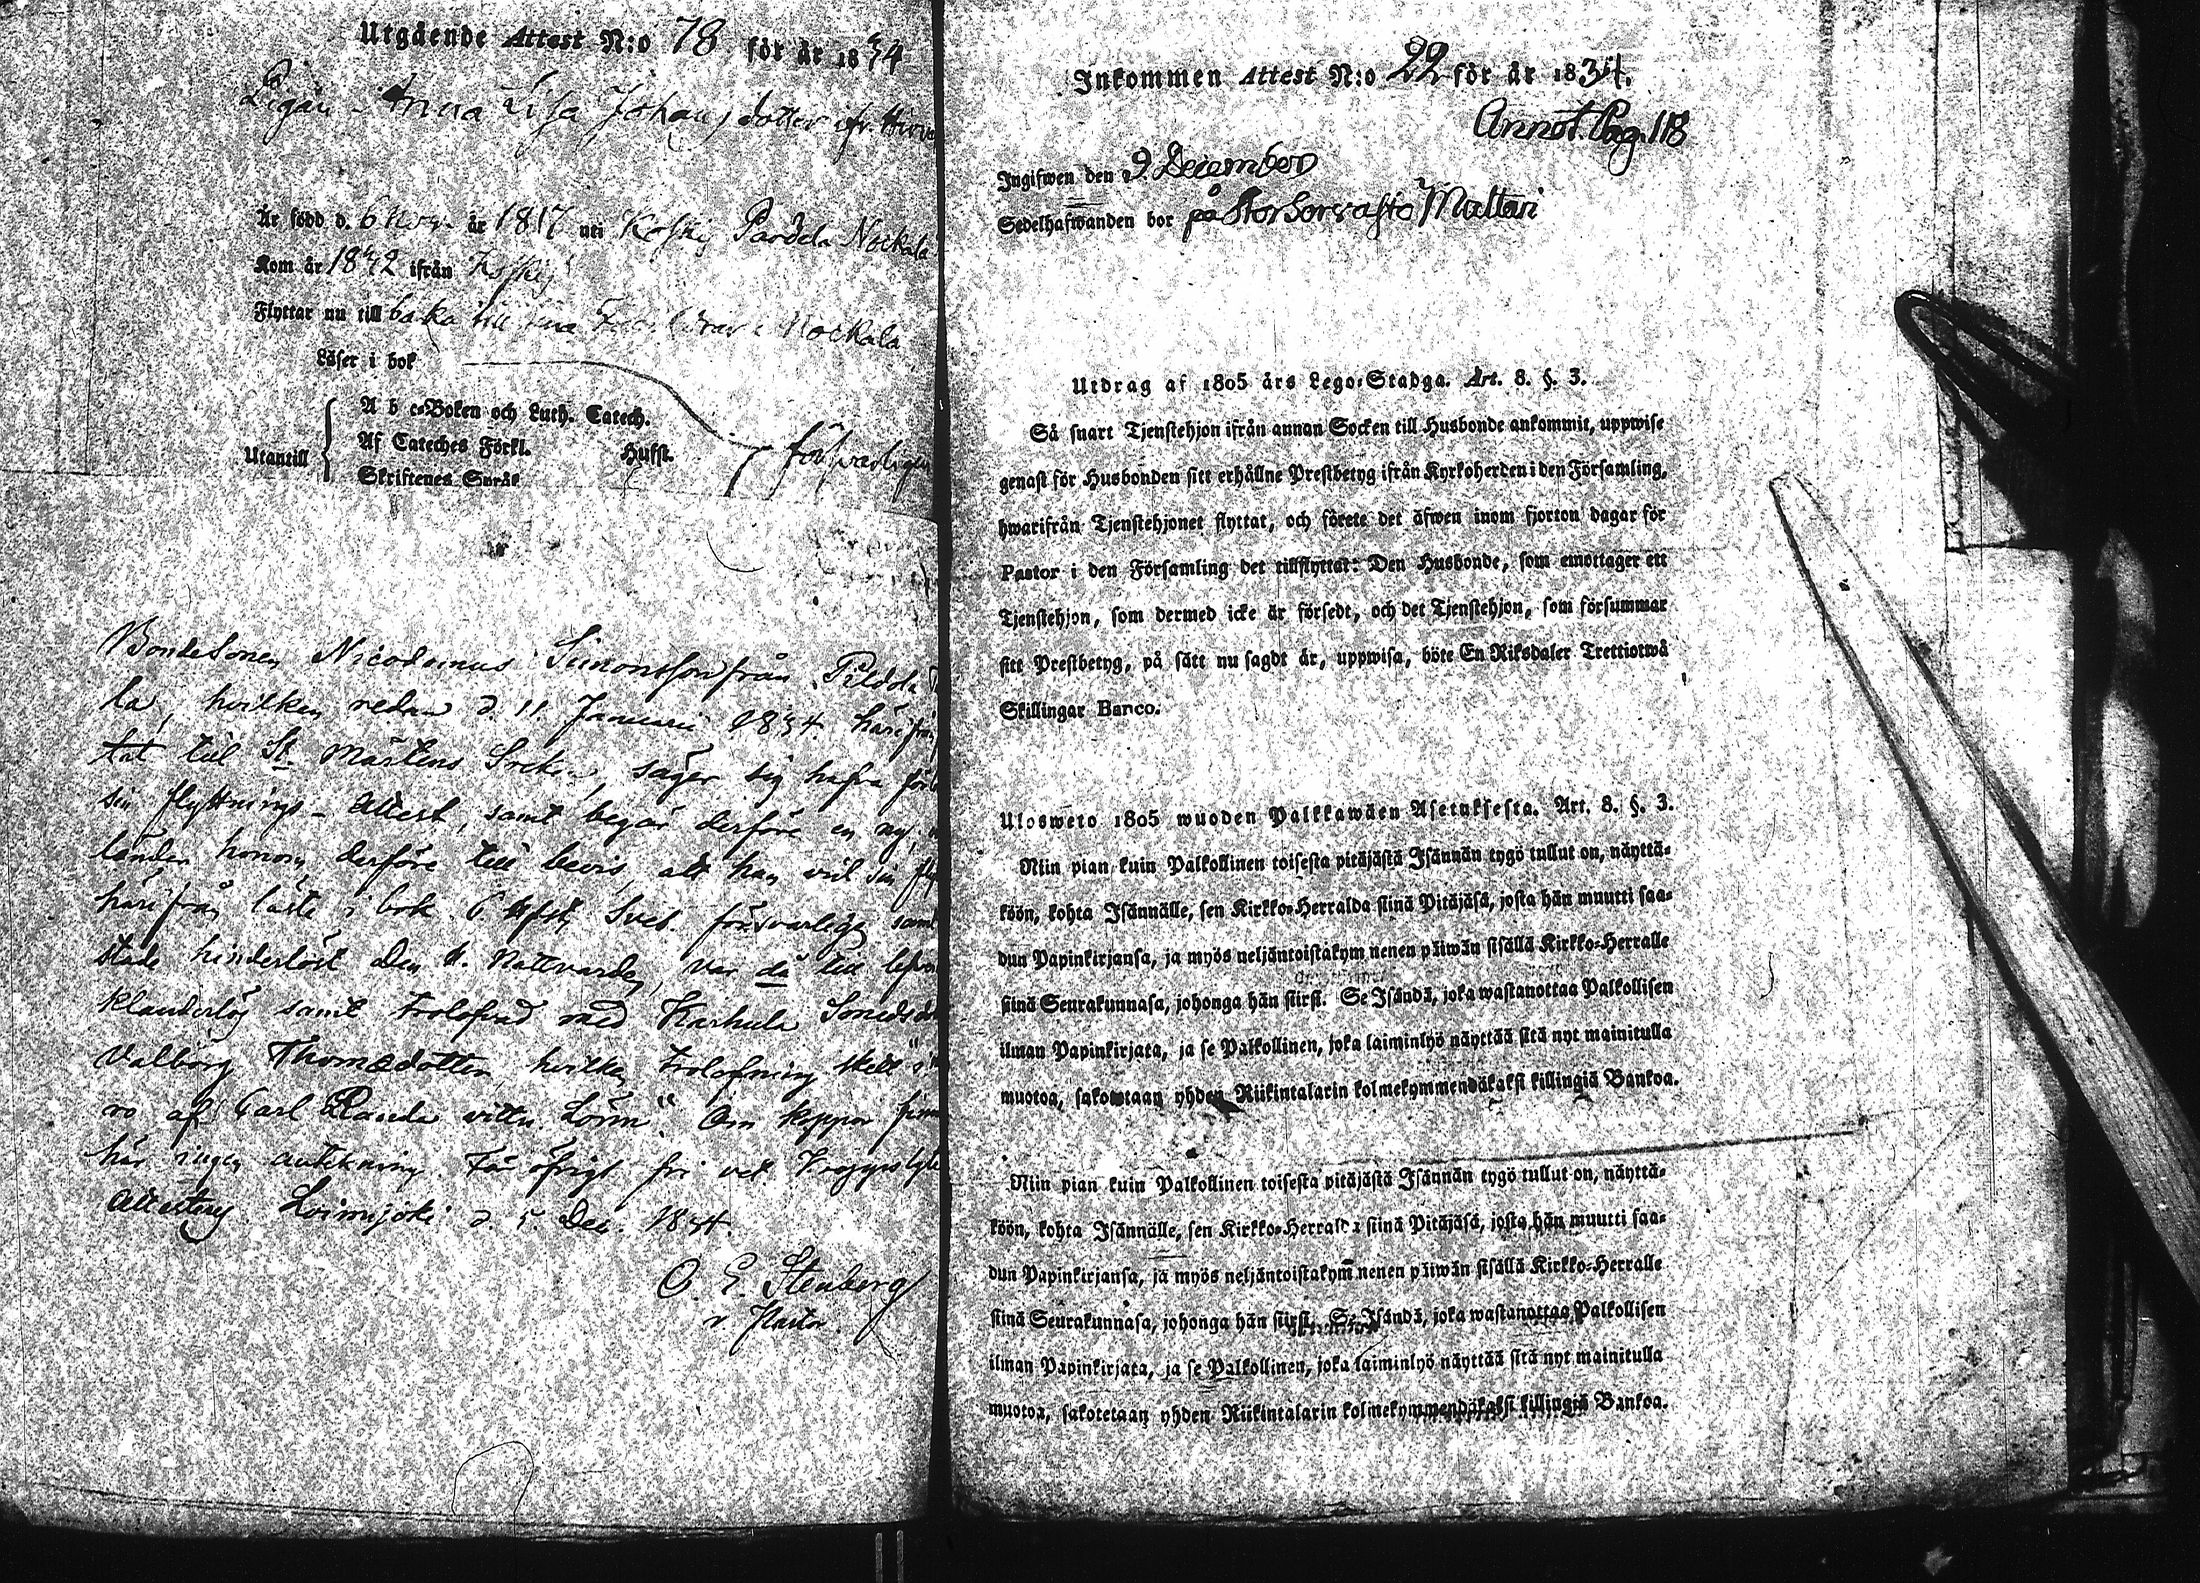 Utgående Attest N:o 78 för år 1834
Pigan Anna Lisa Johansdotter ifr.
Är född d. 6 år 1817 uti Koskis Nockala
Kom år 1832 ifrån Koskis
Flyttar nu till baka till sina Nockala
Läser i bok
Utantill
A b c-Boken och Luth. Catech.
Af Cateches Förkl. Husst.
Skriftenes Språk
försvarligen
Bondesonen Nicodemus Simonsson från
la, hvilken redan d. 11. Januarii 1834. härifrån
tat till St. Mårtens Socken, säger sig hafva
sin flyttnings-attest, samt begär derföre en ny,
länder honom derföre till bevis, att han vid sin
härifrån läste i bok försvarligen samt
stade hinderlöst den H. Nattvarden, var då till
klanderlös samt trolofvad med
Valborg Thomædotter, hvilken trolofning
ro af Carl Om koppor
här ingen antekning. För öfrigt fri
Loimijoki d. 5. Dec. 1834.
O. E. Stenberg
v. Pastor.
Inkommen Attest N:o 22 för år 1834.
Annot. Pag. 118
Ingifwen den 9 December
Sedelhafwanden bor på Storsorvasto Mattari
Utdrag af 1805 års Lego-Stadga. Art. 8. §. 3.
Så snart Tjenstehjon ifrån annan Socken till Husbonde ankommit, uppwise
genast för Husbonden sitt erhållne Prestbetyg ifrån Kyrkoherden i den Församling,
hwarifrån Tjenstehjonet flyttat, och förete det äfwen inom fjorton dagar för
Pastor i den Församling det tillflyttat: Den Husbonde, som emottager ett
Tjenstehjon, som dermed icke är försedt, och det Tjenstehjon, som försummar
sitt Prestbetyg, på sätt nu sagdt är, uppwisa, böte En Riksdaler Trettiotwå
Skillingar Banco.
Ulosweto 1805 wuoden Palkkawäen Asetuksesta. Art. 8. §. 3.
Niin pian kuin Palkollinen toisesta pitäjästä Isännän tygö tullut on, näyttä-
köön, kohta Isännälle, sen Kirkko-Herralda siinä Pitäjäsä, josta hän muutti saa-
dun Papinkirjansa, ja myös neljäntoistakym nenen päiwän sisällä Kirkko-Herralle
siinä Seurakunnasa, johonga hän siirsi. Se Isändä, joka wastanottaa Palkollisen
ilman Papinkirjata, ja se Palkollinen, joka laiminlyö näyttää sitä nyt mainitulla
muotoa, sakotetaan yhden Riikintalarin kolmekymmendäkaksi killingiä Bankoa.
Niin pian kuin Palkollinen toisesta pitäjästä Isännän tygö tullut on, näyttä-
köön, kohta Isännälle, sen Kirkko-Herralda siinä Pitäjäsä, josta hän muutti saa-
dun Papinkirjansa, ja myös neljäntoistakym nenen päiwän sisällä Kirkko-Herralle
siinä Seurakunnasa, johonga hän siirsi. Se Isändä, joka wastanottaa Palkollisen
ilman Papinkirjata, ja se Palkollinen, joka laiminlyö näyttää sitä nyt mainitulla
muotoa, sakotetaan yhden Riikintalarin kolmekymmendäkaksi killingiä Bankoa.